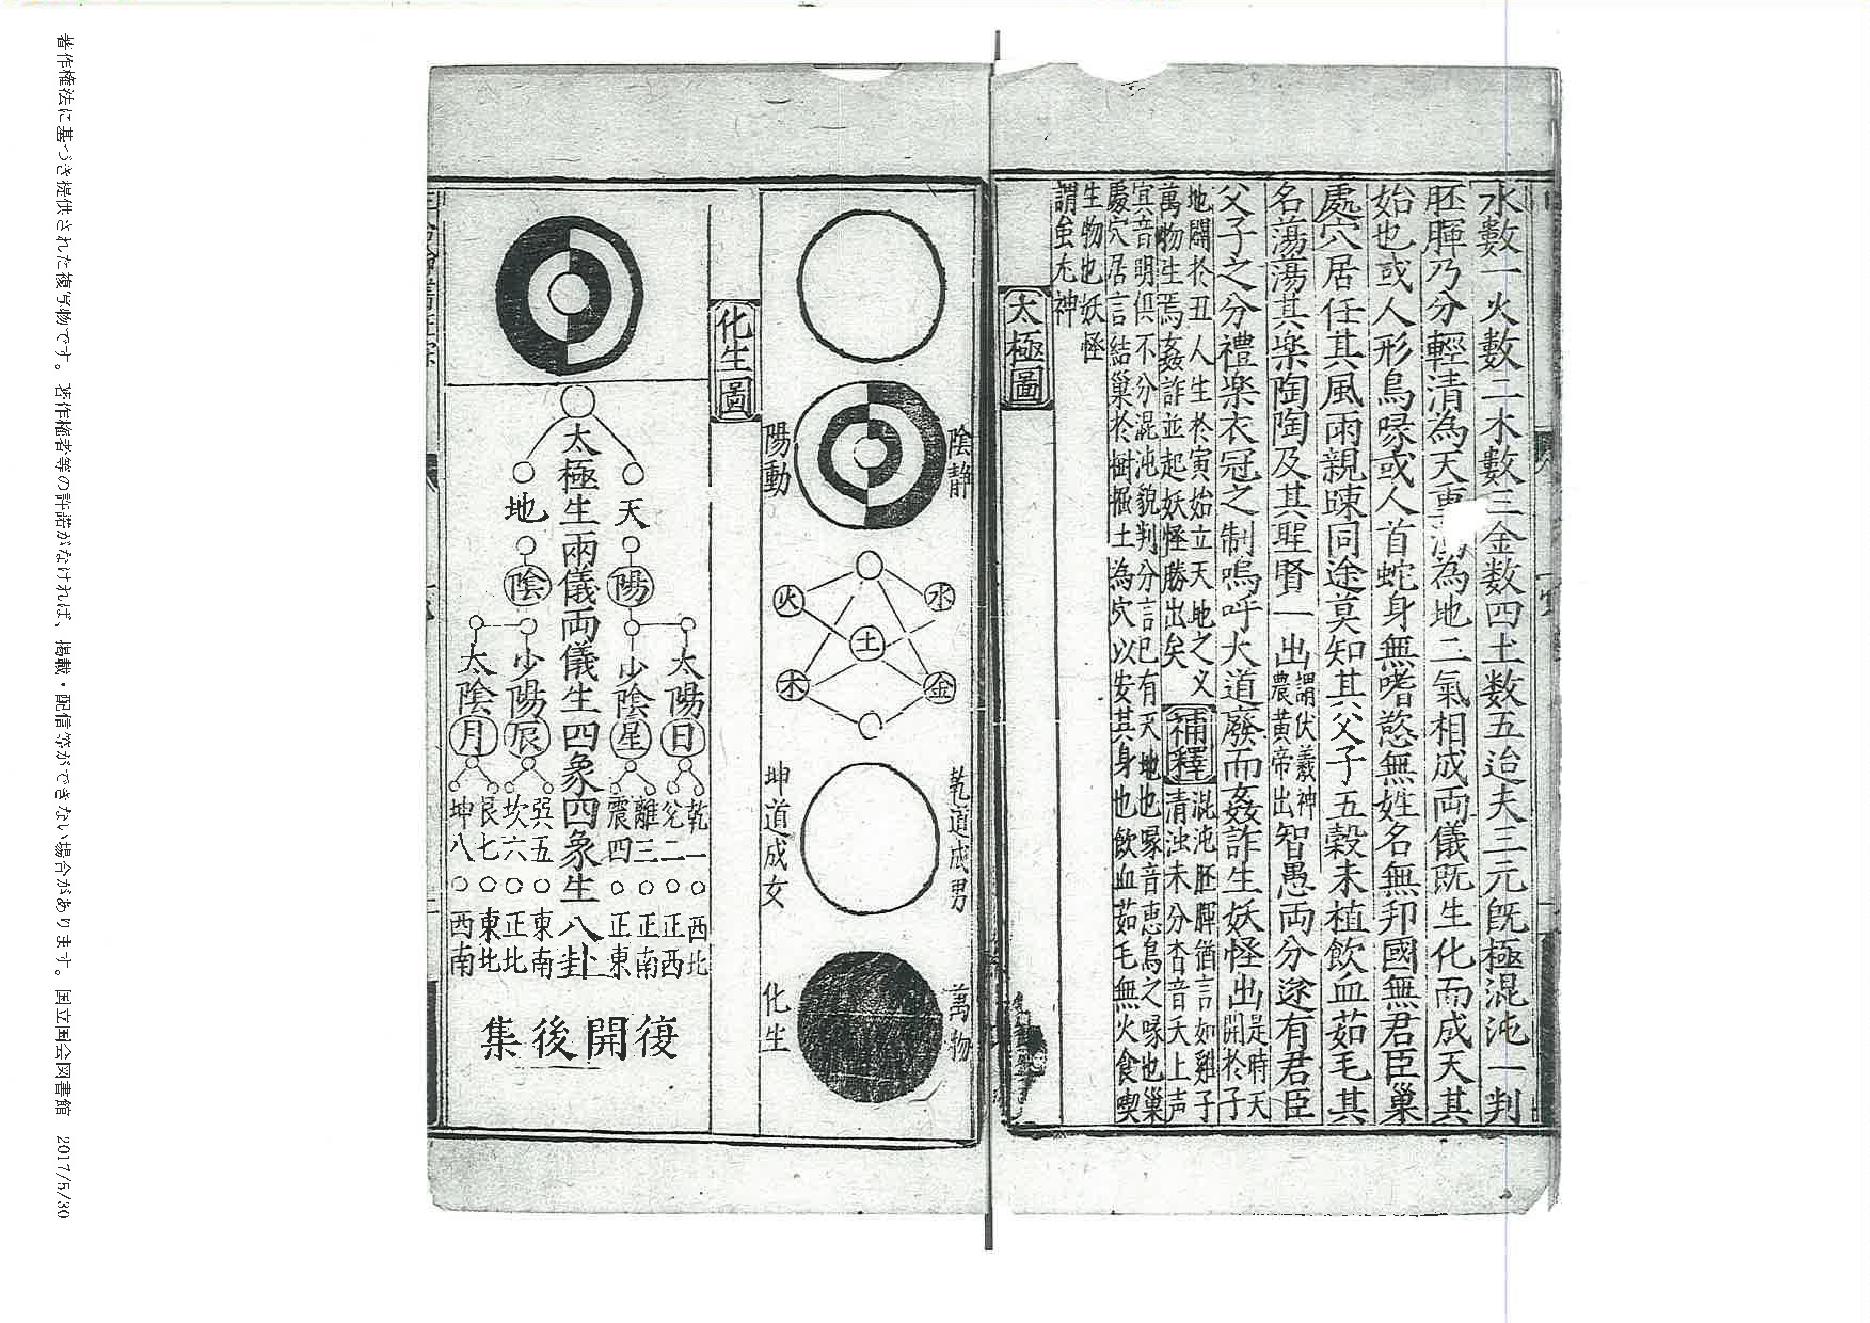 水數一火數二木數三金数四土数五迨夫三元既極混沌一判
胚腪乃分輕清為天重濁為地二氣相成両儀既生化而成天其
始也或人形鳥喙或人首蛇身無嗜慾無姓名無邦國無君臣巢
處穴居任其風雨親踈同途莫知其父子五穀未植飲血茹毛其
名蕩蕩其楽陶陶及其聖賢一出
謂伏羲神
農黄帝出
智愚両分途有君臣
父子之分禮楽衣冠之制嗚呼大道廢而姦詐生妖怪出
是時天
開於子
地闢於丑人生於寅始立天地之义
萬物生焉姦詐並起妖怪勝出矣
補釋
混沌胚腪猶言如雞子
清浊未分杏音夭上声
冥音明俱不分混沌貌判分言已有天地也喙音恵鳥之喙也巢
處穴居言結巢於樹掘土為穴以安其身也飲血茹毛無火食喫
生物也妖怪
謂虽尢神
太極圖
陰靜
陽動
水
火
土
金
木
乾道成男
坤道成女
萬物
化生
化生圖
太極生両儀両儀生四象四象生八卦
天
地
陽
陰
太陽
少陰
少陽
太陰
日
星
辰
月
乾一〇西北
兌二〇正西
離三〇正南
震四〇正東
巽五〇東南
坎六〇正北
艮七〇東北
坤八〇西南
復開後集
著作権法に基づき提供された複写物です。著作権者等の許諾がなければ、掲載・配信等ができない場合があります。国立国会図書館 2017/5/30